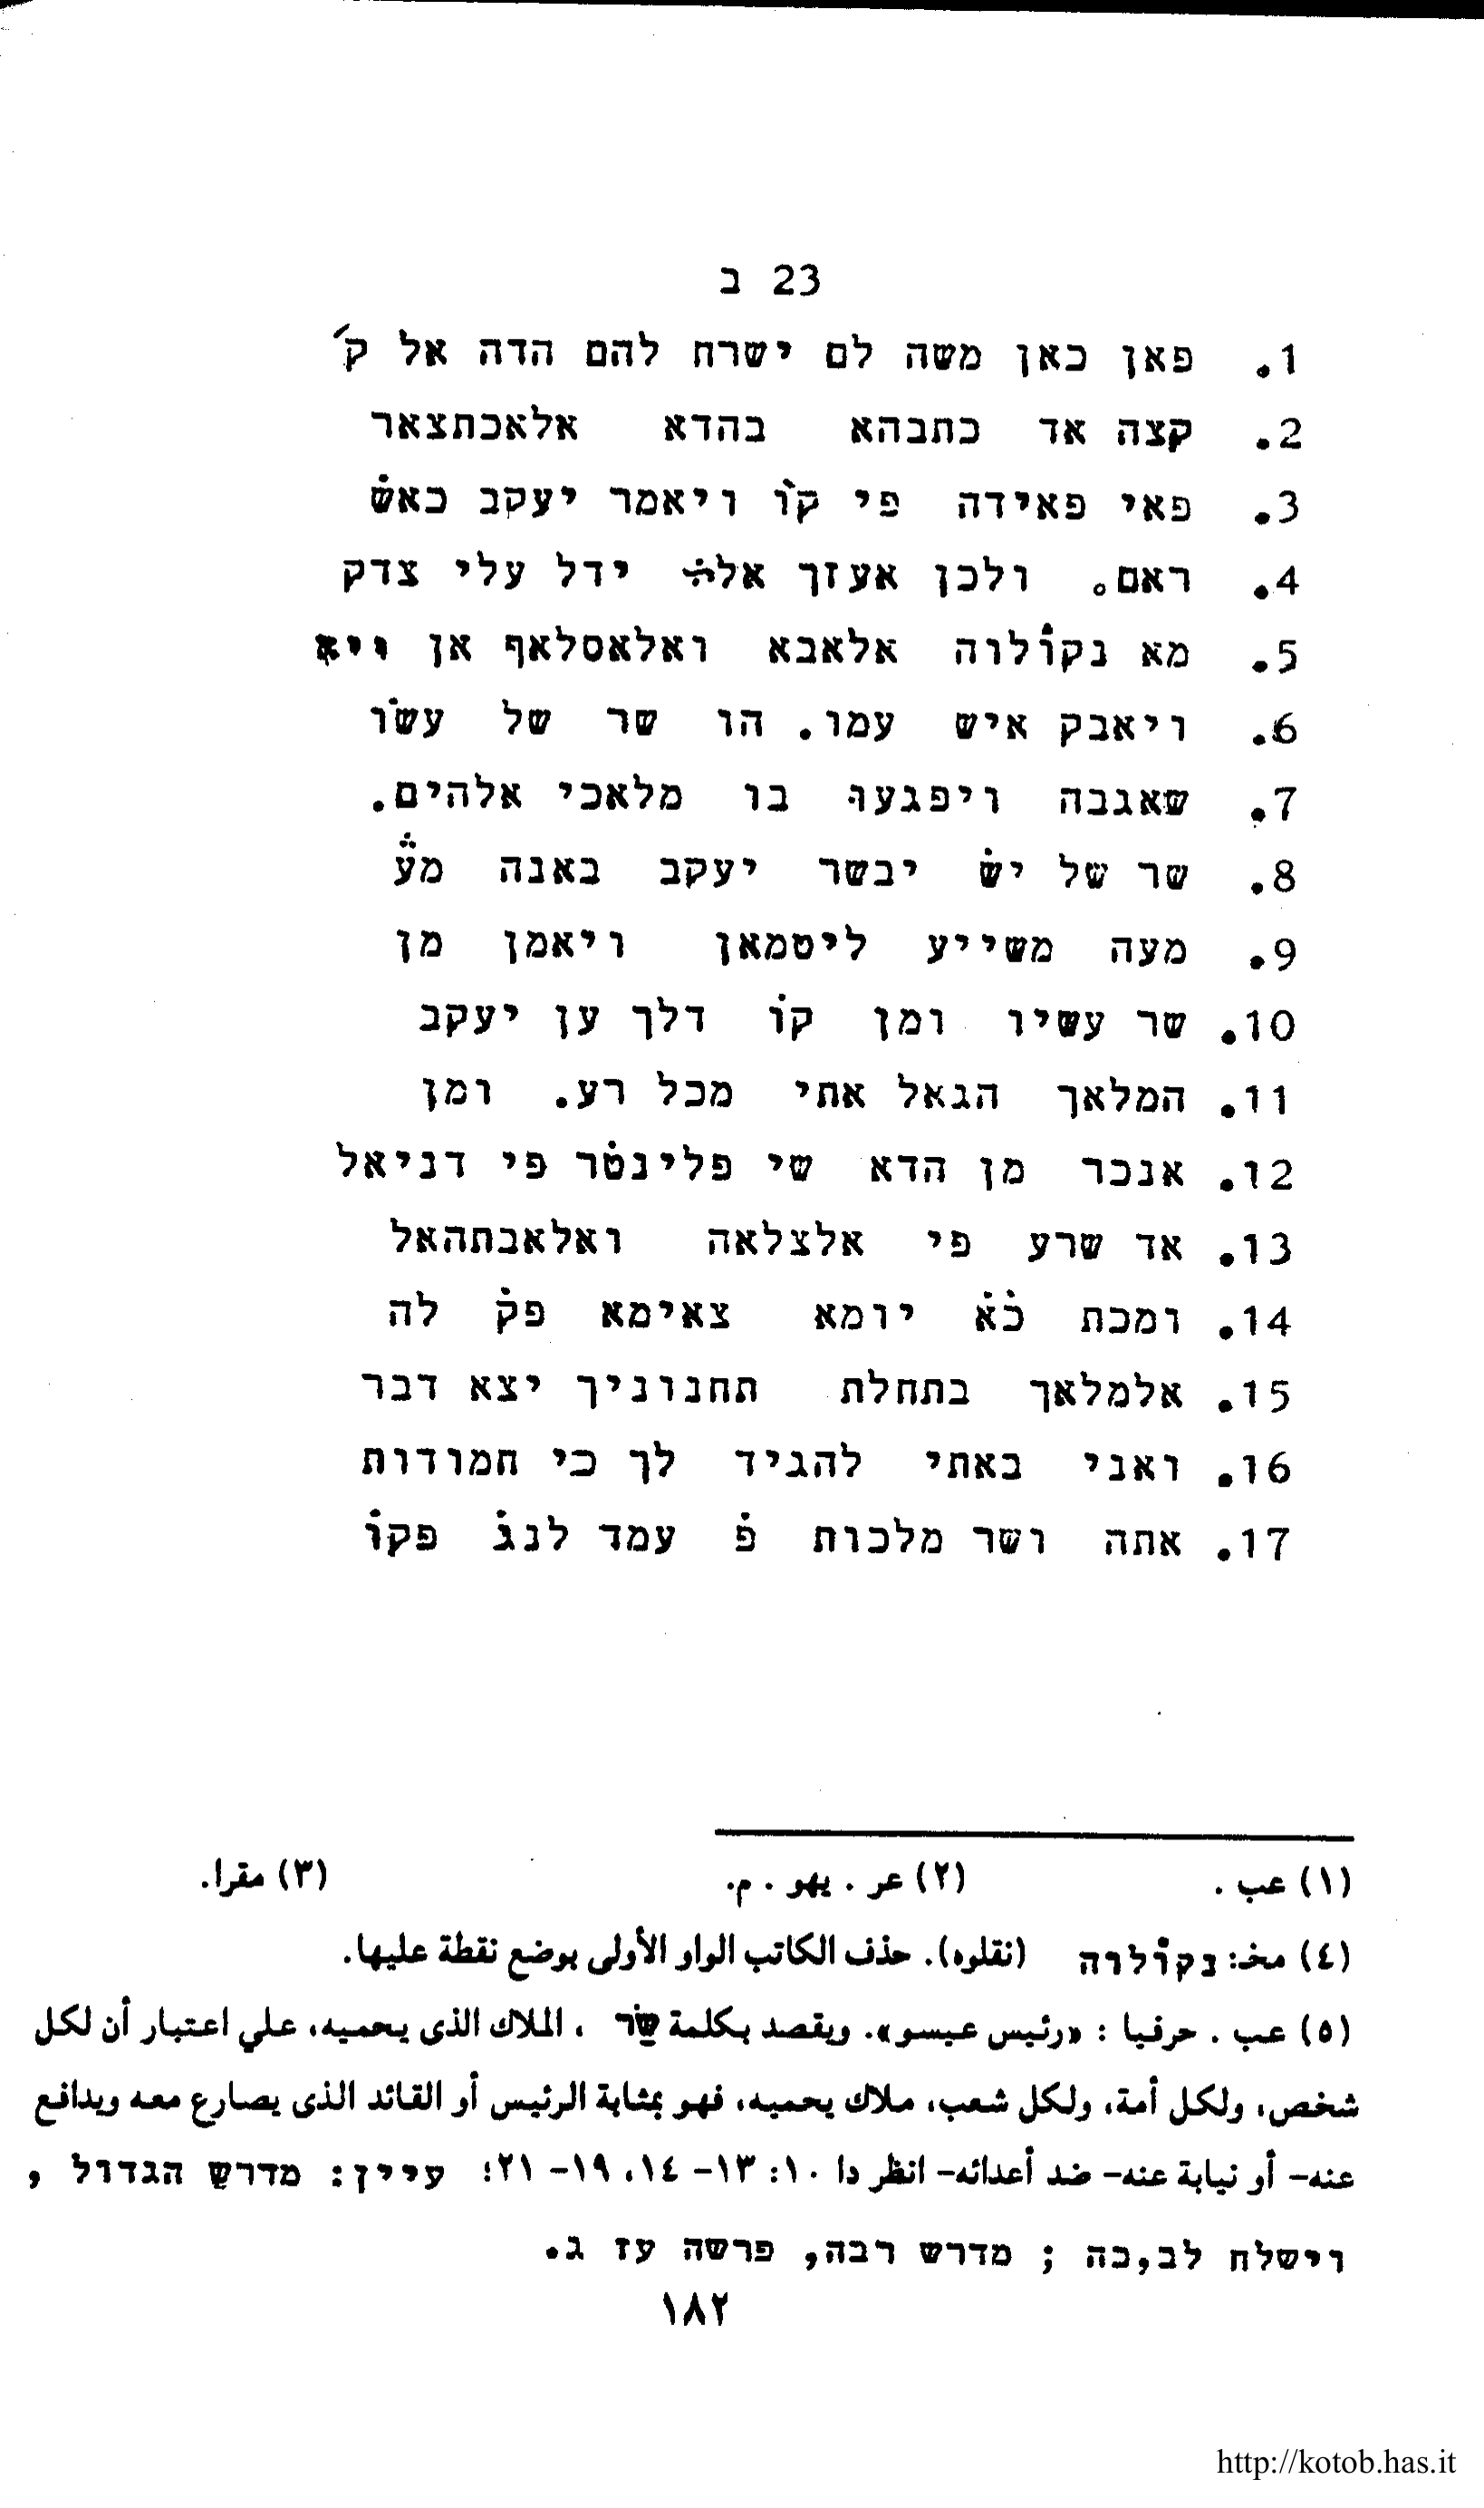 23 ב
1. פאן כאן משה לם ישרח להם הדה אל ק׳
2. קצה אד כתבהא בהדא אלאכתצאר
3. פאי פאידה פי קוׄ ויאמר יעקב כאשׄ
4. ראם. ולכן אעזך אלהׄ ידל עלי צדק
5. מא נקוׄלוה אלאבא ואלאסלאף אן ויא
6. ויאבק איש עמו. הו שר של עשׂו
7. שאגבה ויפגעו בו מלאכי אלהים.
8. שר של ישׄ יבשר יעקב באנה מעׄ
9. מעה משייע ליטמאן ויאמן מן
10. שר עשיו ומן קוׄ דלך ען יעקב
11. המלאך הגאל אתי מכל רע. ומן
12. אנכר מן הדא שי פלינטׄר פי דניאל
13. אד שרע פי אלצלאה ואלאבתהאל
14. ומכת כׄאׄ יומא צאימא פקׄ לה
15. אלמלאך בתחלת תחנוניך יצא דבר
16. ואני באתי להגיד לך כי חמודות
17. אתה ושר מלכות פׄ עמד לנגׄ פקוׄ
(١) عب . (٢) عر . يهو . م. (٣) مقرا.
(٤) مخ: נקוׄלוה (نقلوه). حذف الكاتب الواو الأولى بوضع نقطة عليها.
(٥) عب . حرفيا : «رئيس عيسو». ويقصد بكلمة שׂר ، الملاك الذى يحميه، علي اعتبار أن لكل
شخص، ولكل أمة، ولكل شعب، ملاك يحميه، فهو بمثابة الرئيس أو القائد الذى يصارع معه ويدافع
عنه- أو نيابة عنه- ضد أعدائه- انظر دا ١٠: ١٣- ١٤، ١٩- ٢١؛ עיין: מדרש הגדול ,
וישלח לב,כה ; מדרש רבה, פרשה עז ג.
١٨٢
http://kotob.has.it